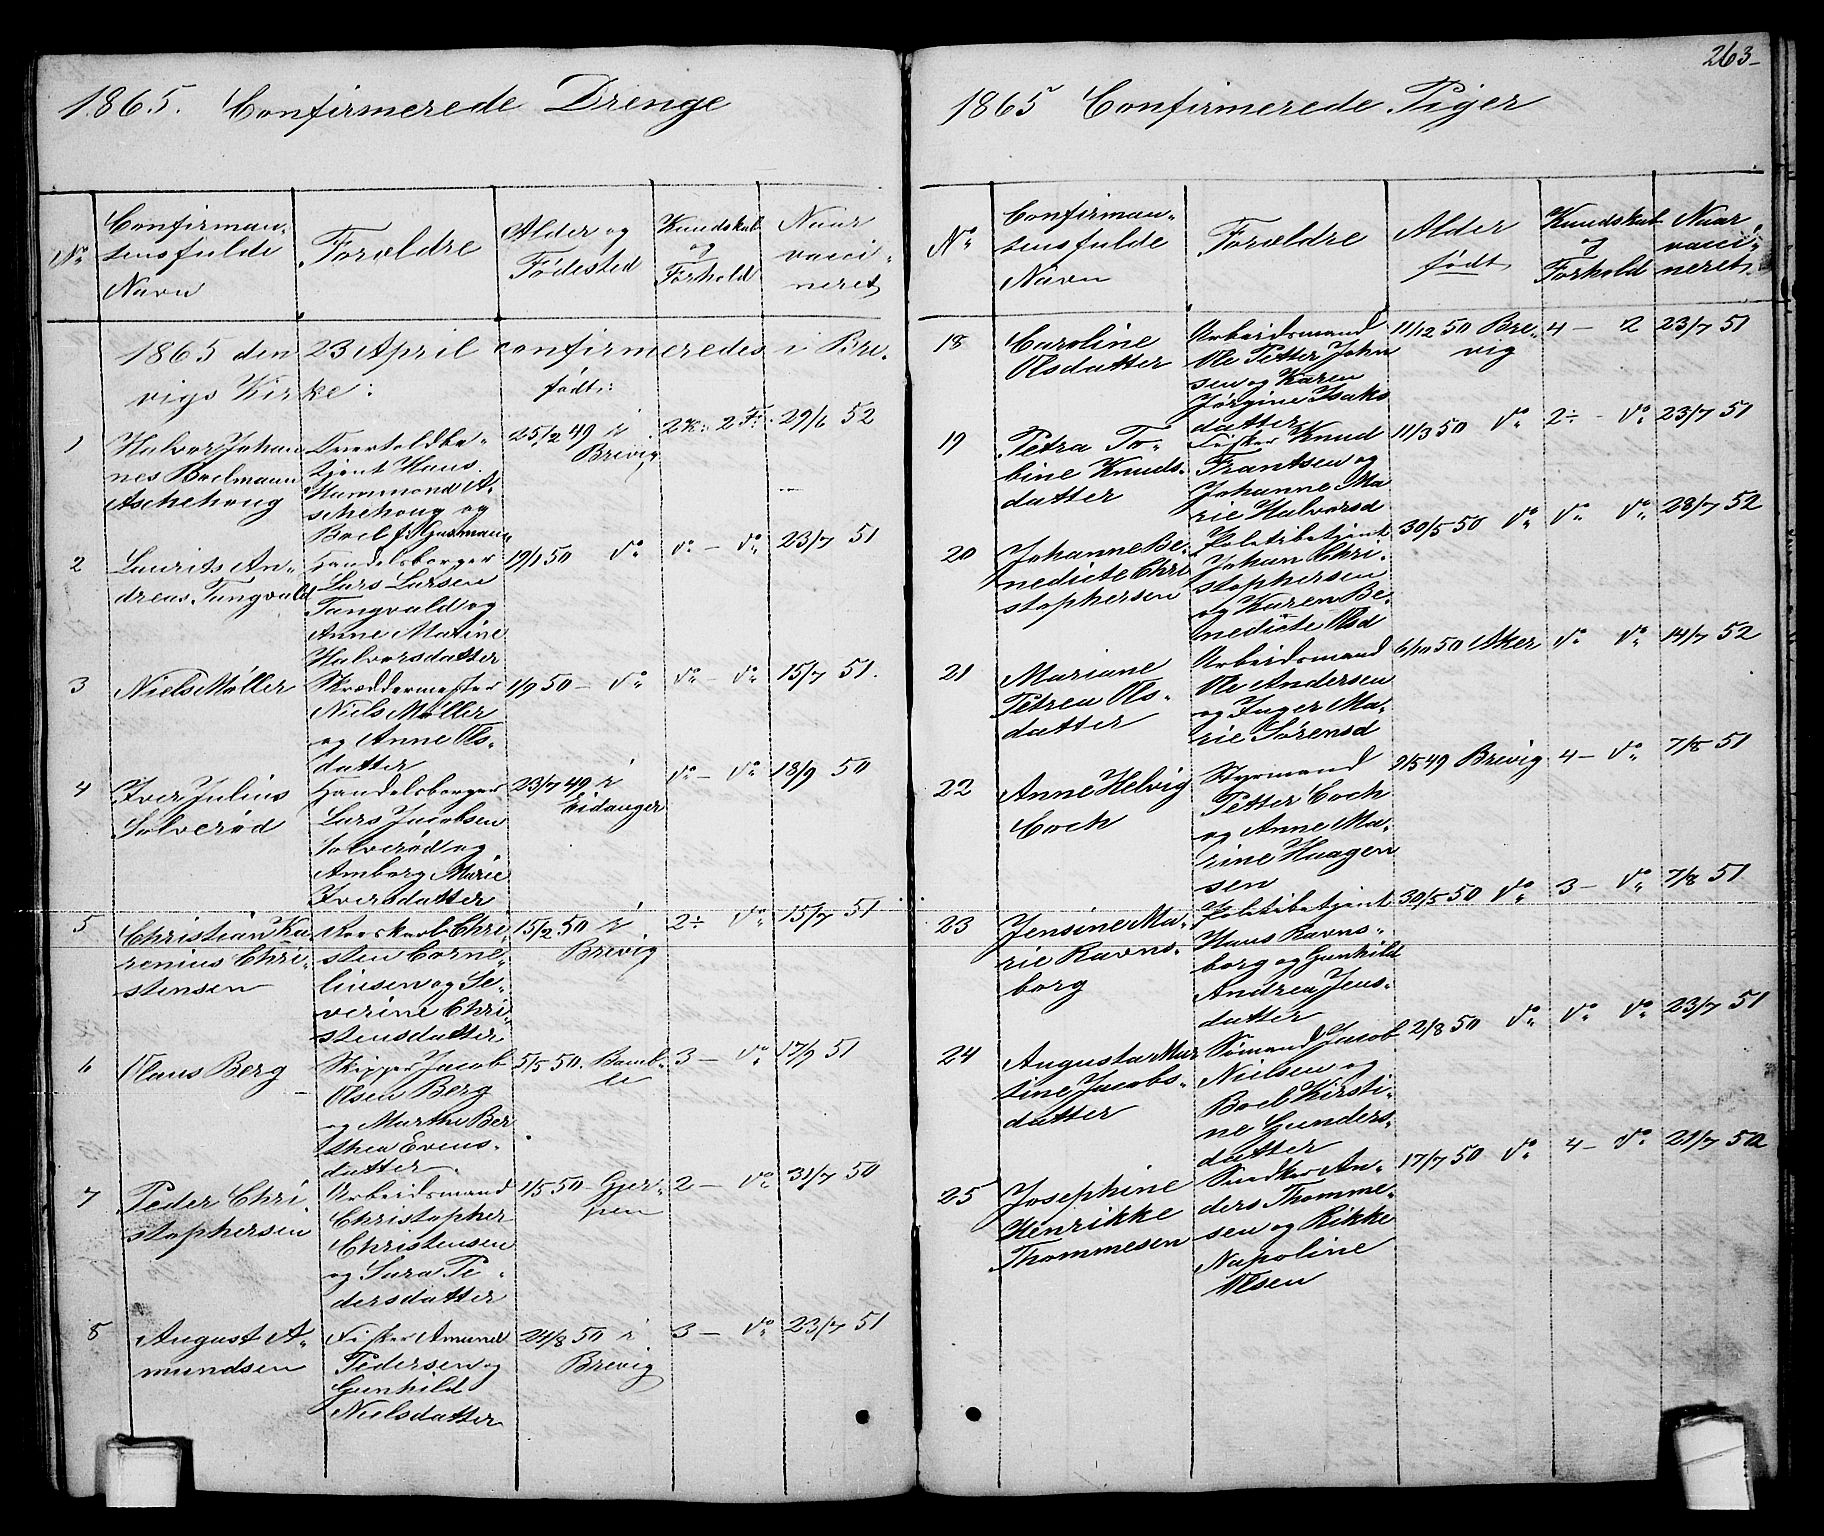 263
1865. Confirmerede Drenge
No
Confirman-
tens fulde
Navn
Forældre
Alder og
Fødested
Kundskab
og
Forhold
Naar
vacci-
neret
1865 den 23 April confirmeredes i Bre-
vigs Kirke:
født:
1
Halvor Johan
nes Boelmann
Aschehoug
Overtoldbe-
tjent Hans
Hammond A-
schehoug og
Boel f.
25/2 49 i
Brevig
2 K: 2 F:
29/6 52
2
Laurits An-
dreas Tangvald
Handelsborger
Lars Larsen
Tangvald og
Anne Matine
Halvorsdatter
19/1 50 do
do - do
23/7 51
3
Niels Møller
Skræddermester
Niels Møller
og Anne Ols-
datter
1/9 50 - do
do - do
15/7 51.
4
Iver Julius
Solverød
Handelsborger
Lars Jacobsen
Solverød og
Amborg Marie
Iversdatter
23/7 49 i
Eidanger
do - do
18/9 50
5
Christian Ka-
renius Chri-
stensen
Christen Corne-
liusen og Se-
verine Chri-
stensdatter
15/2 50 i
Brevig
2 ÷ do
15/7 51
6
Olaus Berg
Skipper Jacob
Olsen Berg
og Marthe Ber
thea Evens-
datter
5/5 50. Bamb-
le
3 - do
17/9 51
7
Peder Chri-
stophersen
Arbeidsmand
Christopher
Christensen
og Sara Pe-
dersdatter
1/5 50 - Gjer-
pen
2 - do
31/7 50
8
August A-
mundsen
Fisker Amund
Pedersen og
Gunhild
Nielsdatter
24/8 50 i
Brevig
3 - do
23/7 51
1865 Confirmerede Piger
No
Confirman-
tens fulde
Navn
Forældre
Alder
født
Kundskab
og
Forhold
Naar
vacci-
neret
18
Caroline
Olsdatter
Arbeidsmand
Ole Petter John
sen og Karen
Jørgine Isaks
datter
11/12 50 Bre-
vig
4 - 2
23/7 51
19
Petra To-
bine Knuds-
datter
Fisker Knud
Frantsen og
Johanne Ma
rie Halvorsd
11/3 50 do
2 ÷ - do
23/7 51
20
Johanne Be-
nedicte Chri
stophersen
Politibetjent
Johan Chri-
stophersen
og Karen Be-
nedicte Olsd
30/5 50 do
do do
28/7 52
21
Mariane
Petrea Ols-
datter
Arbeidsmand
Ole Andersen
og Inger Ma-
rie Sørensd
6/10 50 Asker
do do
14/7 52
22
Anne Helvig
Coch
Styrmand
Petter Coch
og Anne Ma-
rine Haagen
sen
9/5 49 Brevig
4 - do
7/8 51
23
Jensine Ma-
rie Ravns-
borg
Politibetjent
Hans Ravns-
borg og Gunhild
Andrea Jens-
datter
30/5 50 do
3 - do
7/8 51
24
Augusta Mar
tine Jacobs-
datter
Sømand Jacob
Nielsen og
Boel Kirsti-
ne Gunders-
datter
2/8 50 do
do do
23/7 51
25
Josephine
Henrikke
Thommesen
Snedker An-
ders Thomme-
sen og Rikke
Napoline
Olsen
17/7 50 do
4 - do
21/7 52